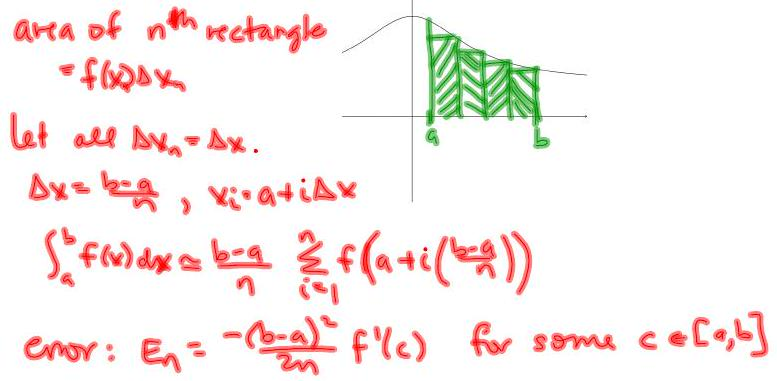 area of nth rectangle
= f(xₙ)Δxₙ
a b
Let all Δxₙ = Δx.
Δx = (b-a)/n , xᵢ = a + iΔx
∫ₐᵇ f(x)dx ≃ (b-a)/n ∑ᵢ₌₁ⁿ f(a + i((b-a)/n))
error: Eₙ = -(b-a)²/2n f'(c) for some c ∈ [a,b]